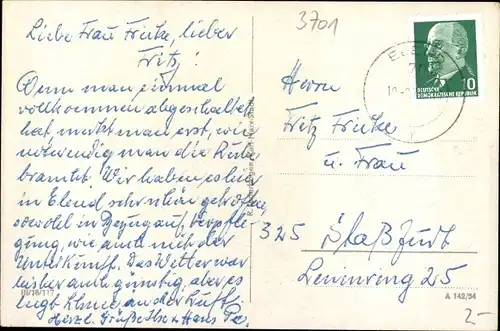 3701
Liebe Frau Fricke, lieber
Fritz!
Wenn man einmal
vollkommen abgeschaltet
hat, merkt man erst, wie
notwendig man die Ruhe
braucht. Wir haben es hier
in Elend sehr schön getroffen,
sowohl in Bezug auf Verpfle-
gung, wie auch mit der
Unterkunft. Das Wetter war
bisher auch günstig, aber es
liegt Schnee in der Luft!
Herzl. Grüße Ilse u. Hans
III/18/117
DEUTSCHE
DEMOKRATISCHE REPUBLIK
10
Herrn
Fritz Fricke
u. Frau
325 Staßfurt
Leninring 25
A 142/54
2-